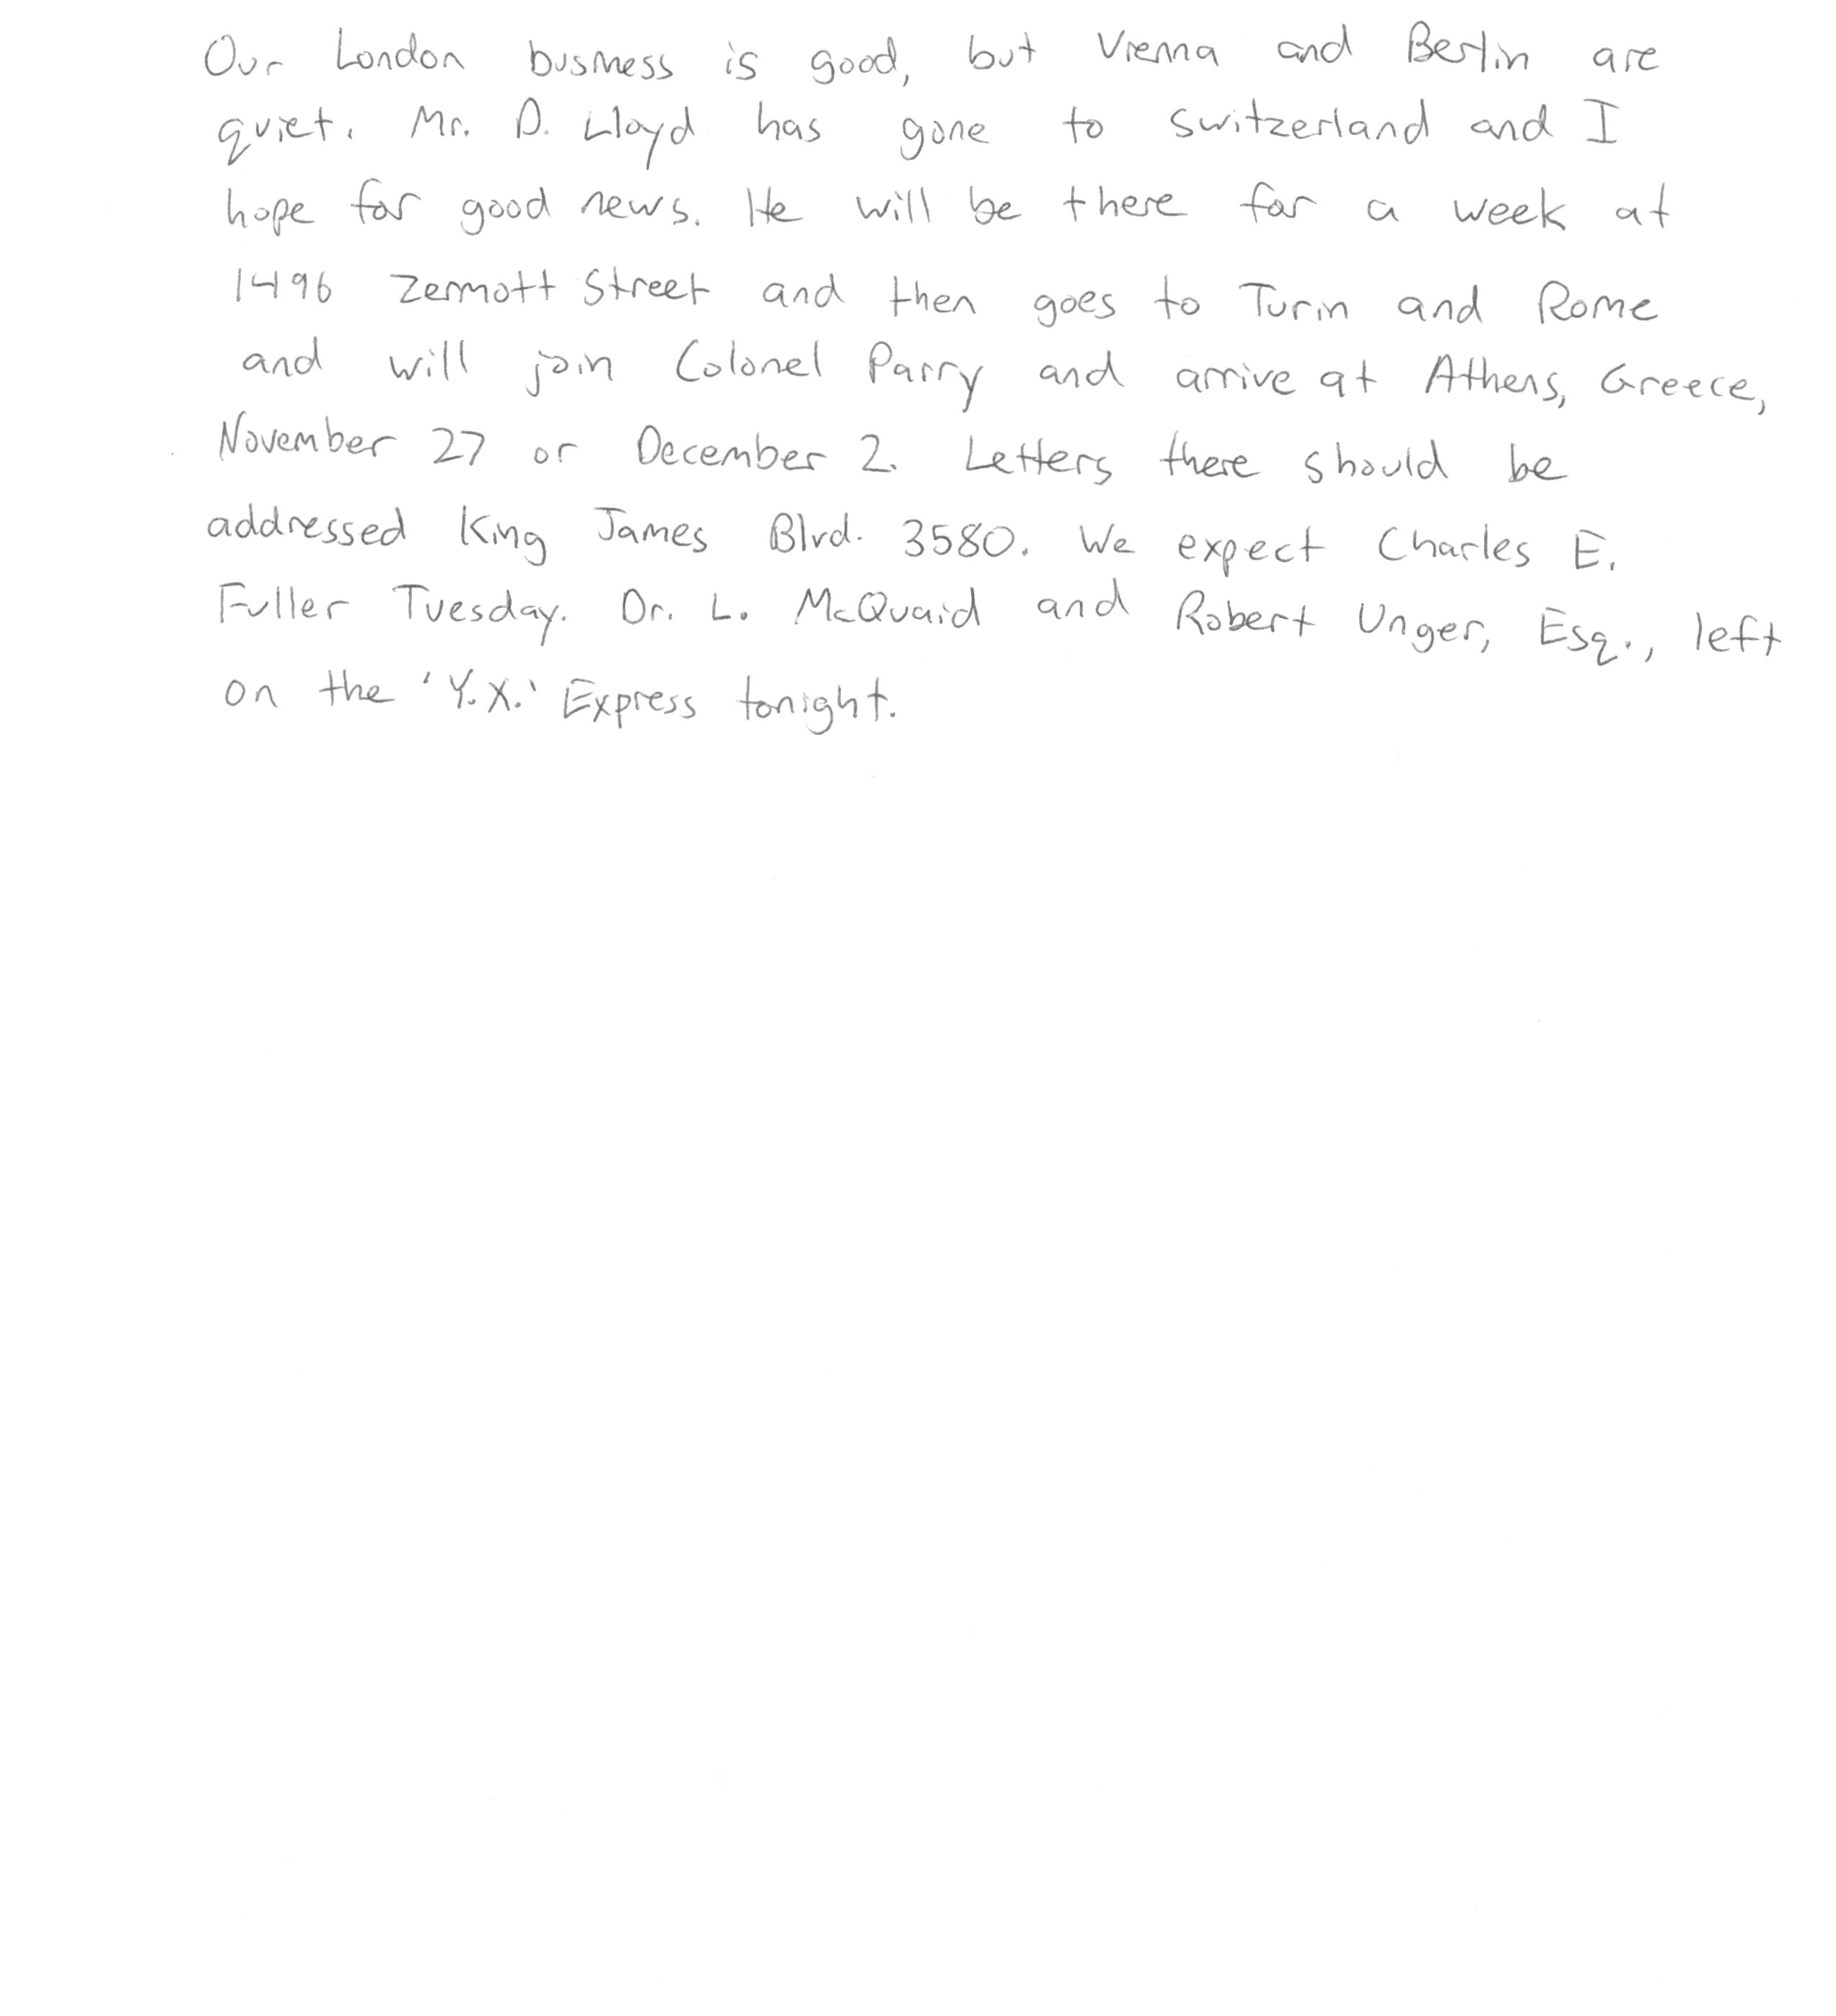 Our London business is good, but Vienna and Berlin are
quiet. Mr. D. Lloyd has gone to Switzerland and I
hope for good news. He will be there for a week at
1496 Zermott Street and then goes to Turin and Rome
and will join Colonel Parry and arrive at Athens, Greece,
November 27 or December 2. Letters there should be
addressed King James Blvd. 3580. We expect Charles E.
Fuller Tuesday. Dr. L. McQuaid and Robert Unger, Esq., left
on the 'Y.X.' Express tonight.